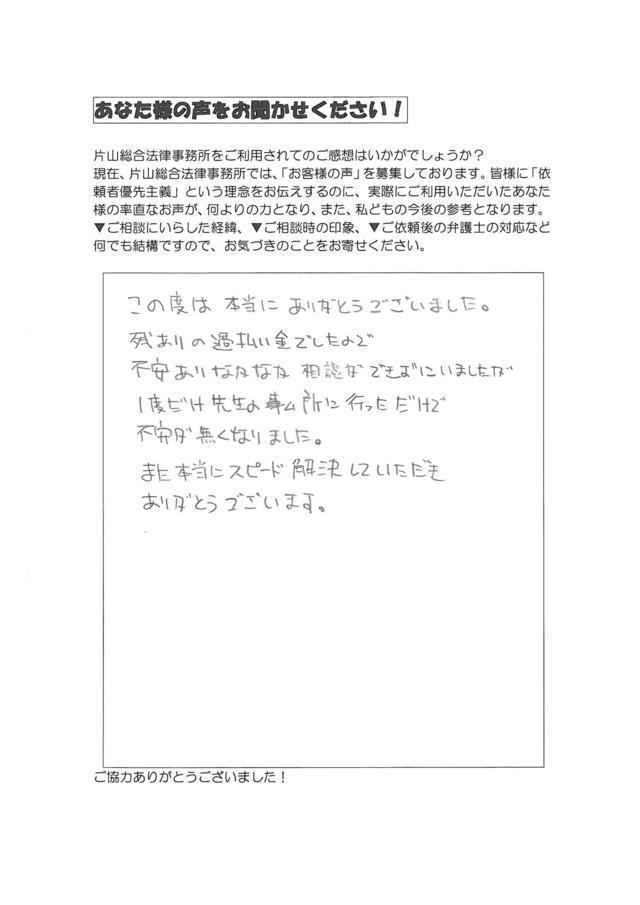 あなた様の声をお聞かせください！
片山総合法律事務所をご利用されてのご感想はいかがでしょうか？
現在、片山総合法律事務所では、「お客様の声」を募集しております。皆様に「依
頼者優先主義」という理念をお伝えするのに、実際にご利用いただいたあなた
様の率直なお声が、何よりの力となり、また、私どもの今後の参考となります。
▼ご相談にいらした経緯、▼ご相談時の印象、▼ご依頼後の弁護士の対応など
何でも結構ですので、お気づきのことをお寄せください。
この度は 本当に ありがとうございました。
残ありの過払い金でしたので
不安ありなかなか 相談が できずにいましたが
1度だけ 先生の事ム所に行っただけで
不安が無くなりました。
また本当にスピード解決していただき
ありがとうございます。
ご協力ありがとうございました！